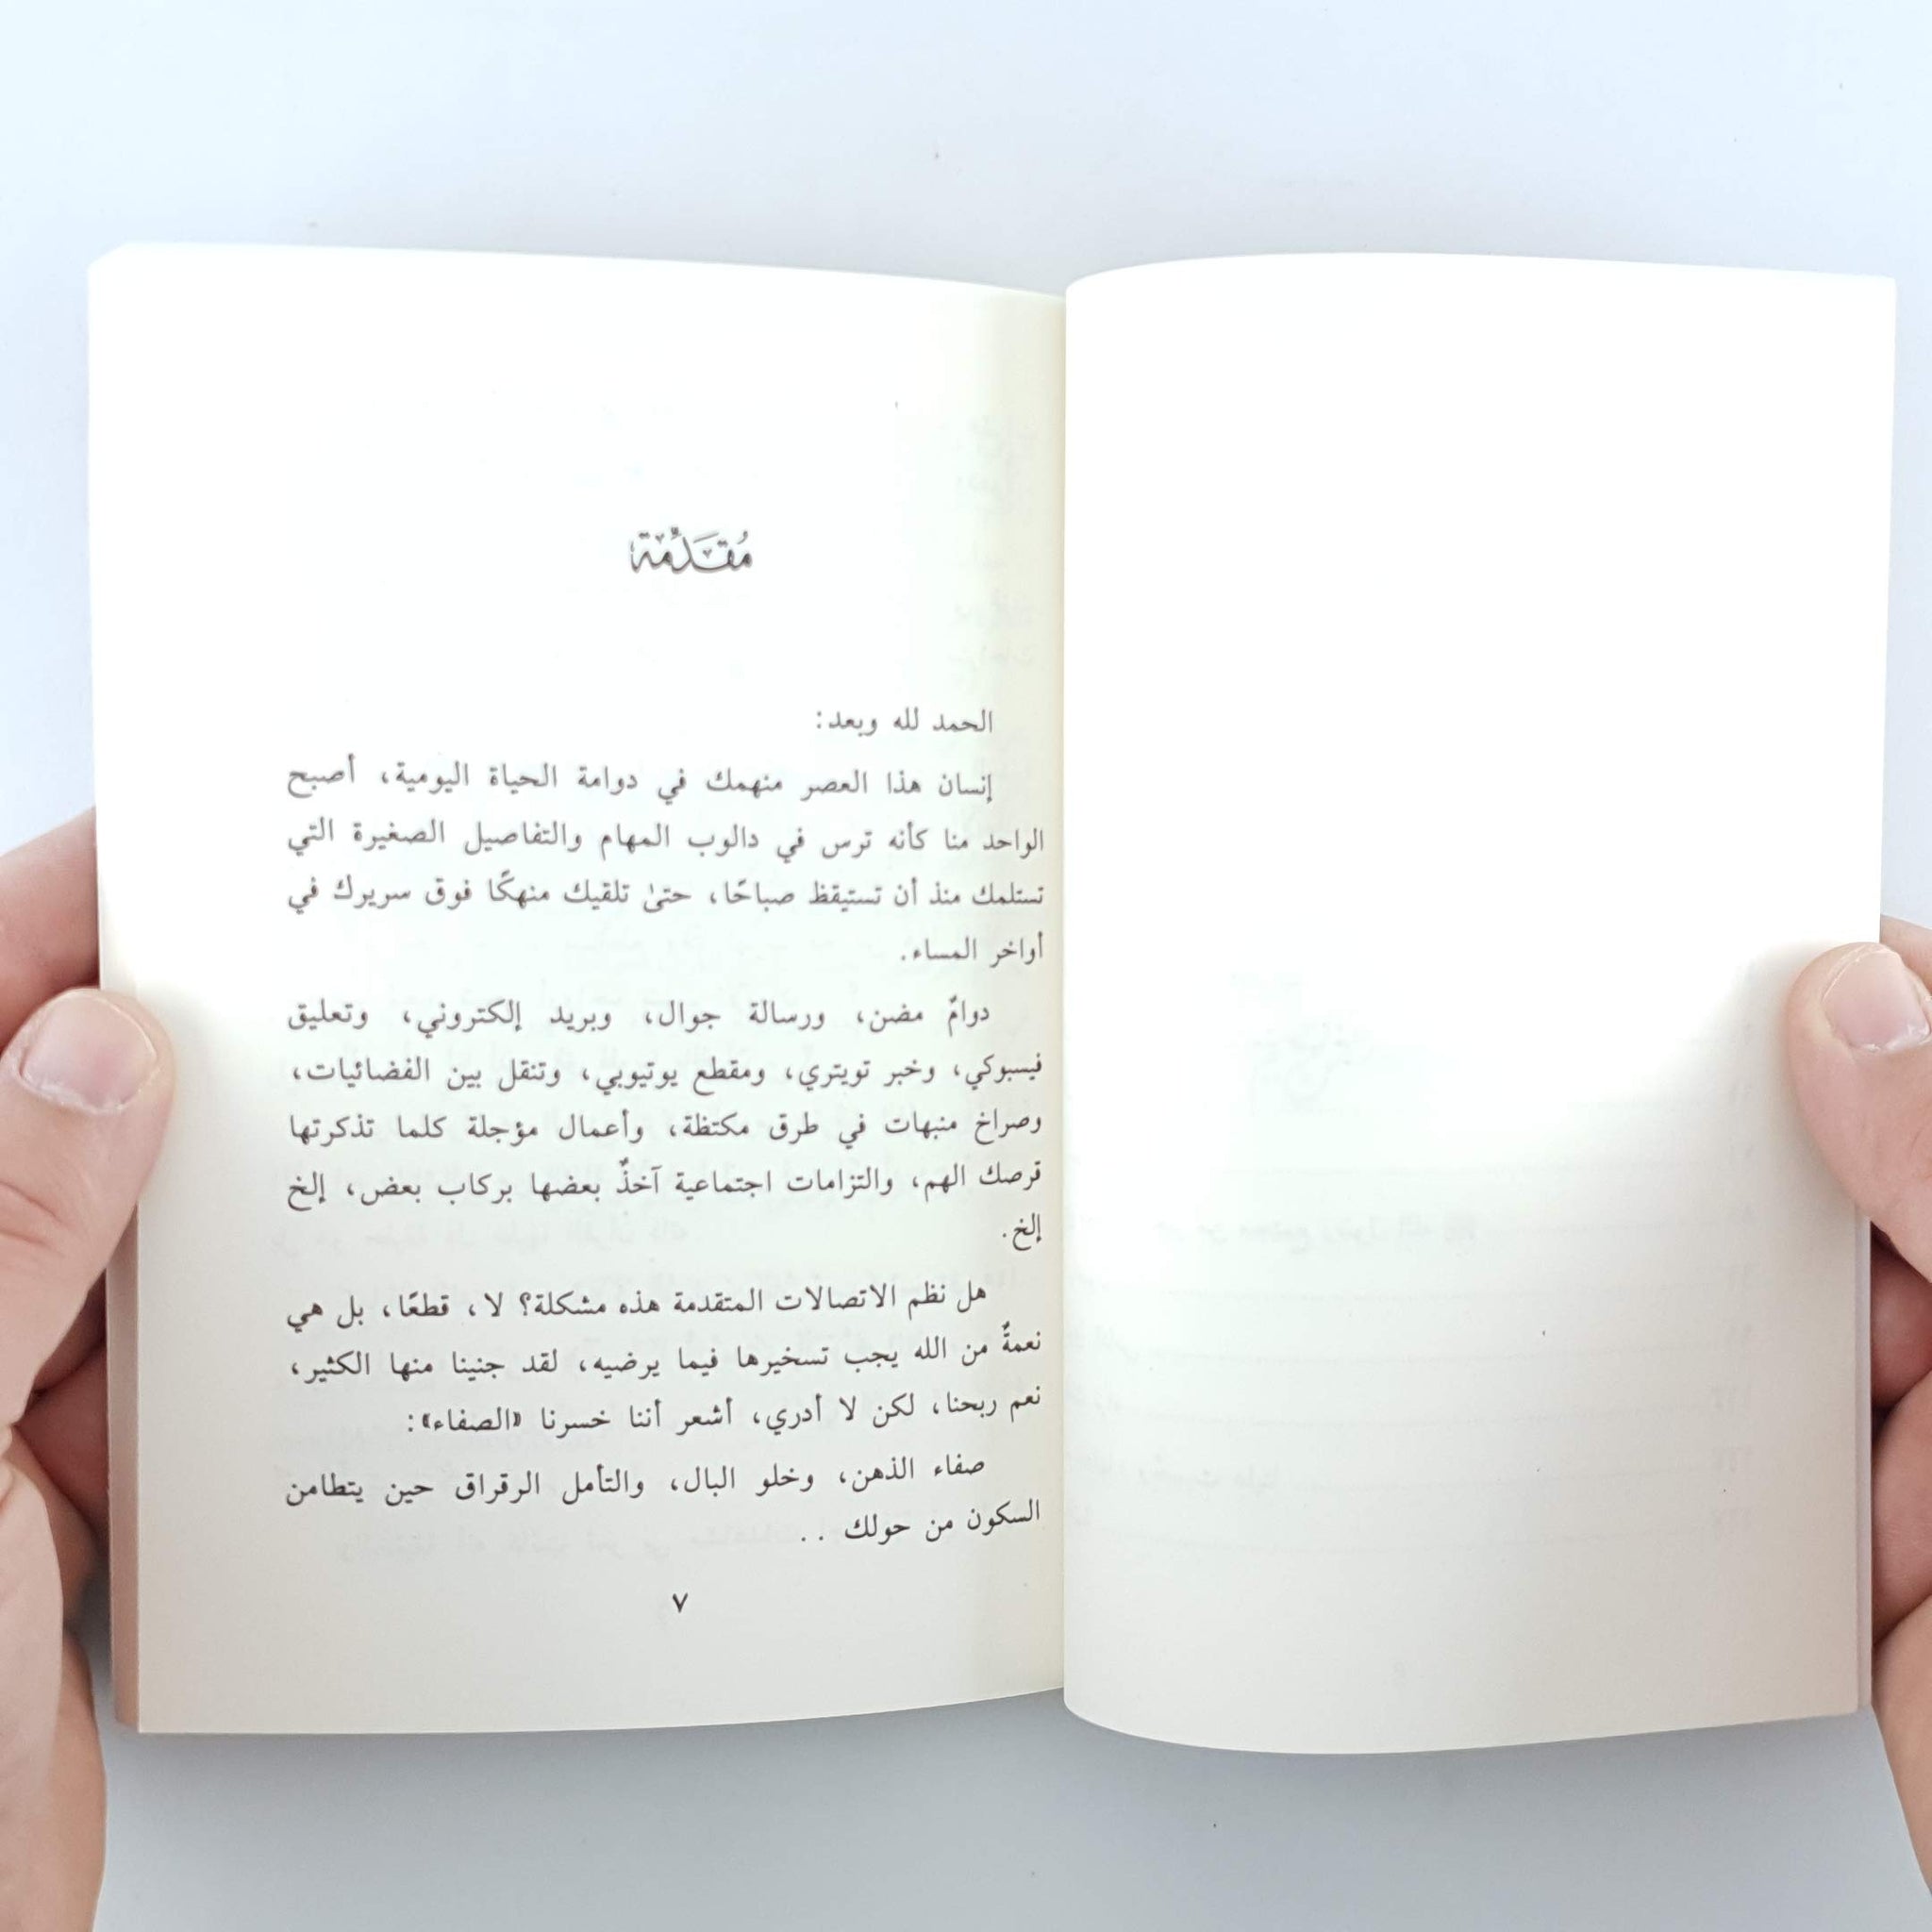 مُقَدِّمَة
الحمد لله وبعد:
إنسان هذا العصر منهمك في دوامة الحياة اليومية، أصبح
الواحد منا كأنه ترس في دالوب المهام والتفاصيل الصغيرة التي
تستلمك منذ أن تستيقظ صباحًا، حتىٰ تلقيك منهكًا فوق سريرك في
أواخر المساء.
دوامٌ مضن، ورسالة جوال، وبريد إلكتروني، وتعليق
فيسبوكي، وخبر تويتري، ومقطع يوتيوبي، وتنقل بين الفضائيات،
وصراخ منبهات في طرق مكتظة، وأعمال مؤجلة كلما تذكرتها
قرصك الهم، والتزامات اجتماعية آخذٌ بعضها بركاب بعض، إلخ
إلخ.
هل نظم الاتصالات المتقدمة هذه مشكلة؟ لا، قطعًا، بل هي
نعمةٌ من الله يجب تسخيرها فيما يرضيه، لقد جنينا منها الكثير،
نعم ربحنا، لكن لا أدري، أشعر أننا خسرنا «الصفاء»:
صفاء الذهن، وخلو البال، والتأمل الرقراق حين يتطامن
السكون من حولك . .
٧